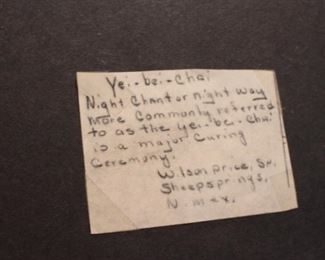 Yei-bei-chai
Night Chant or night way
more Commonly referred
to as the Yei-be-Chai
is a major Curing
Ceremony.
Wilson Price, Sr.
Sheepsprings,
N. Mex.